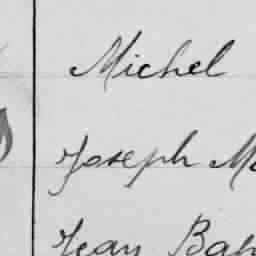 Michel
Joseph M
Jean Bap